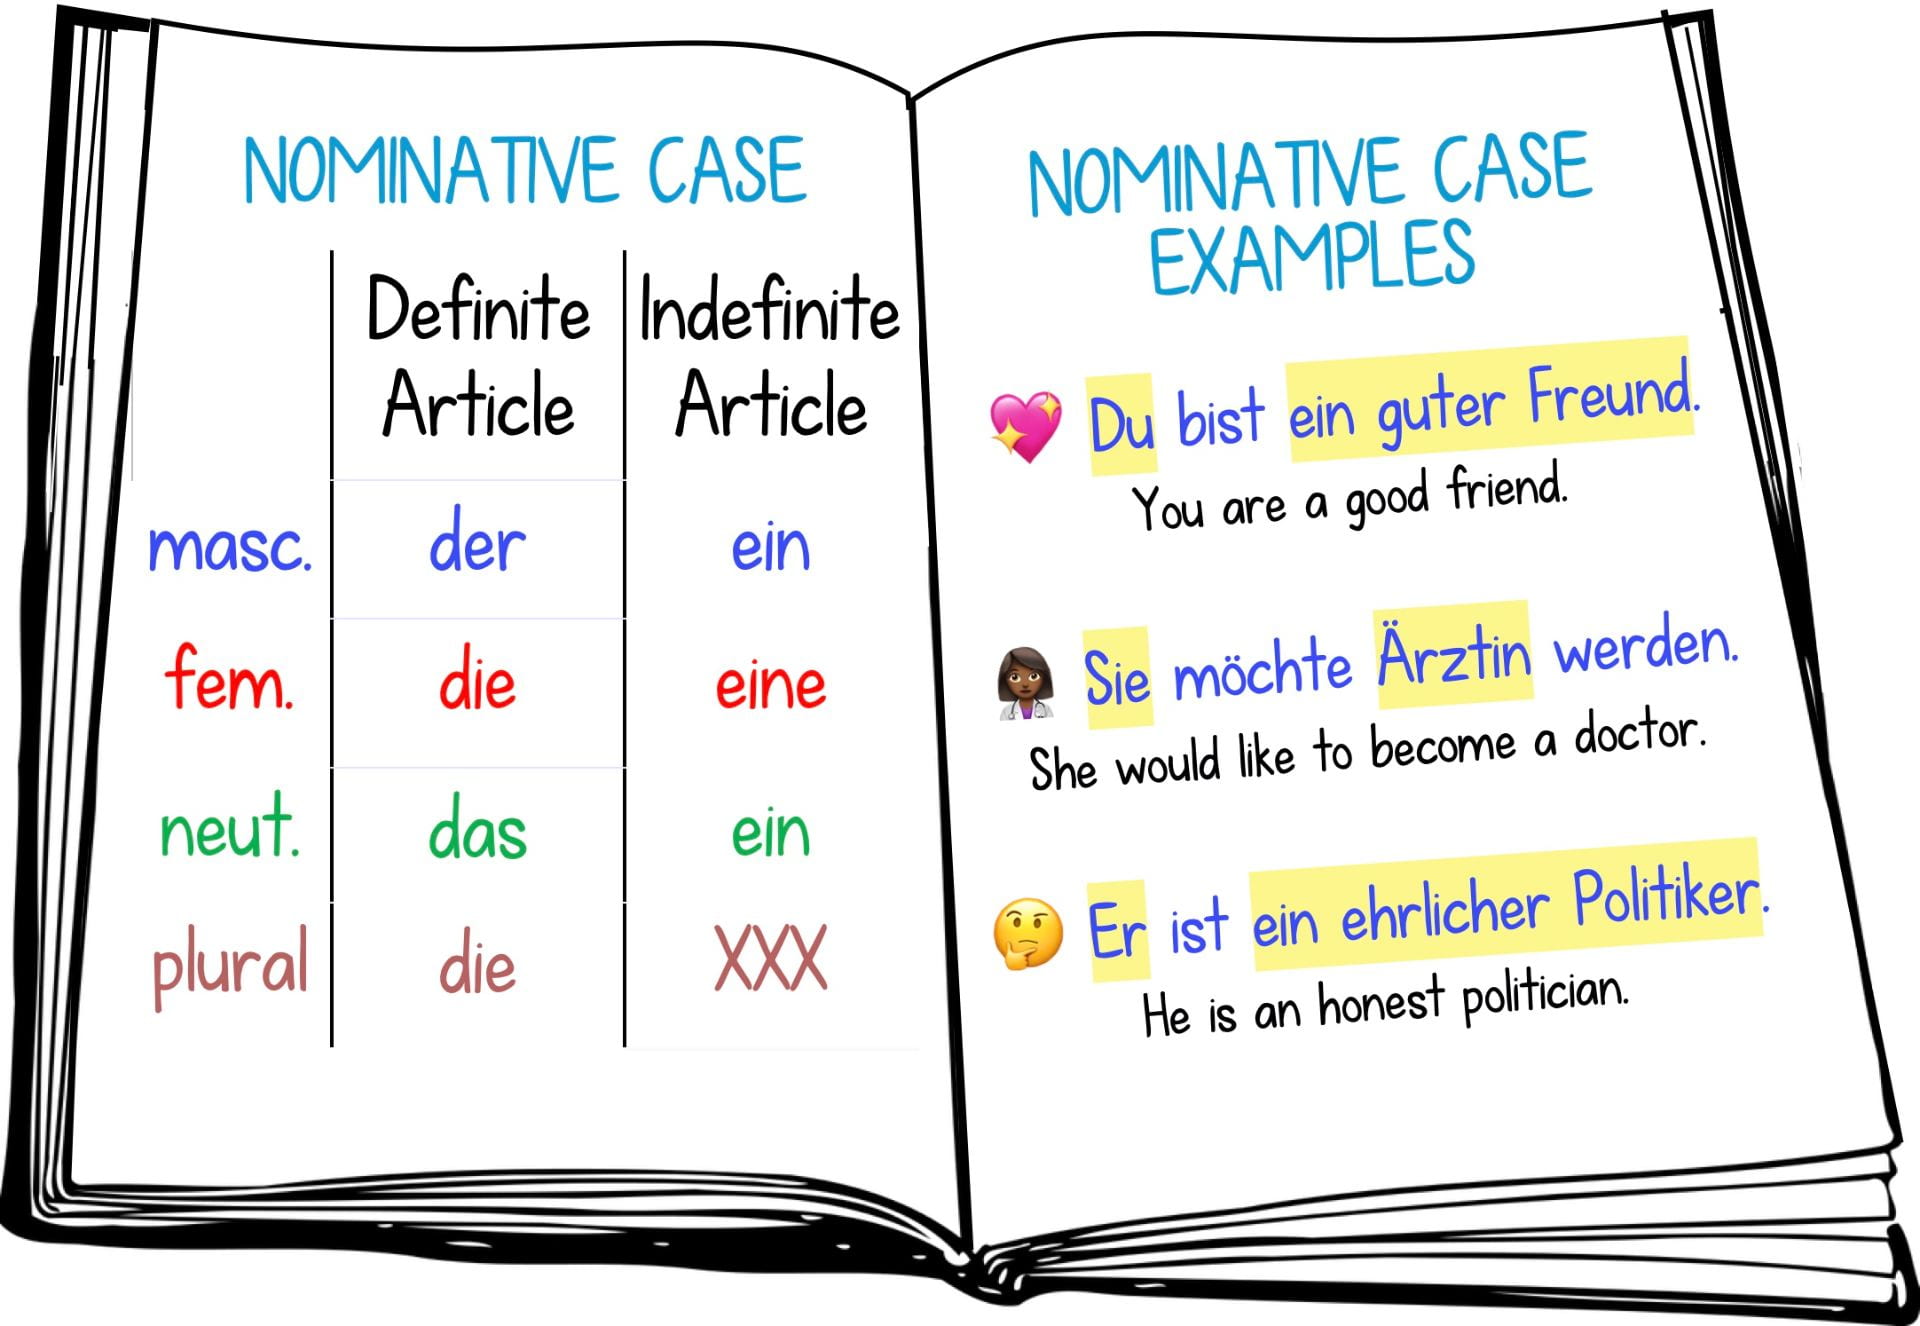 NOMINATIVE CASE
Definite Article Indefinite Article
masc. der ein
fem. die eine
neut. das ein
plural die XXX
NOMINATIVE CASE
EXAMPLES
Du bist ein guter Freund.
You are a good friend.
Sie möchte Ärztin werden.
She would like to become a doctor.
Er ist ein ehrlicher Politiker.
He is an honest politician.